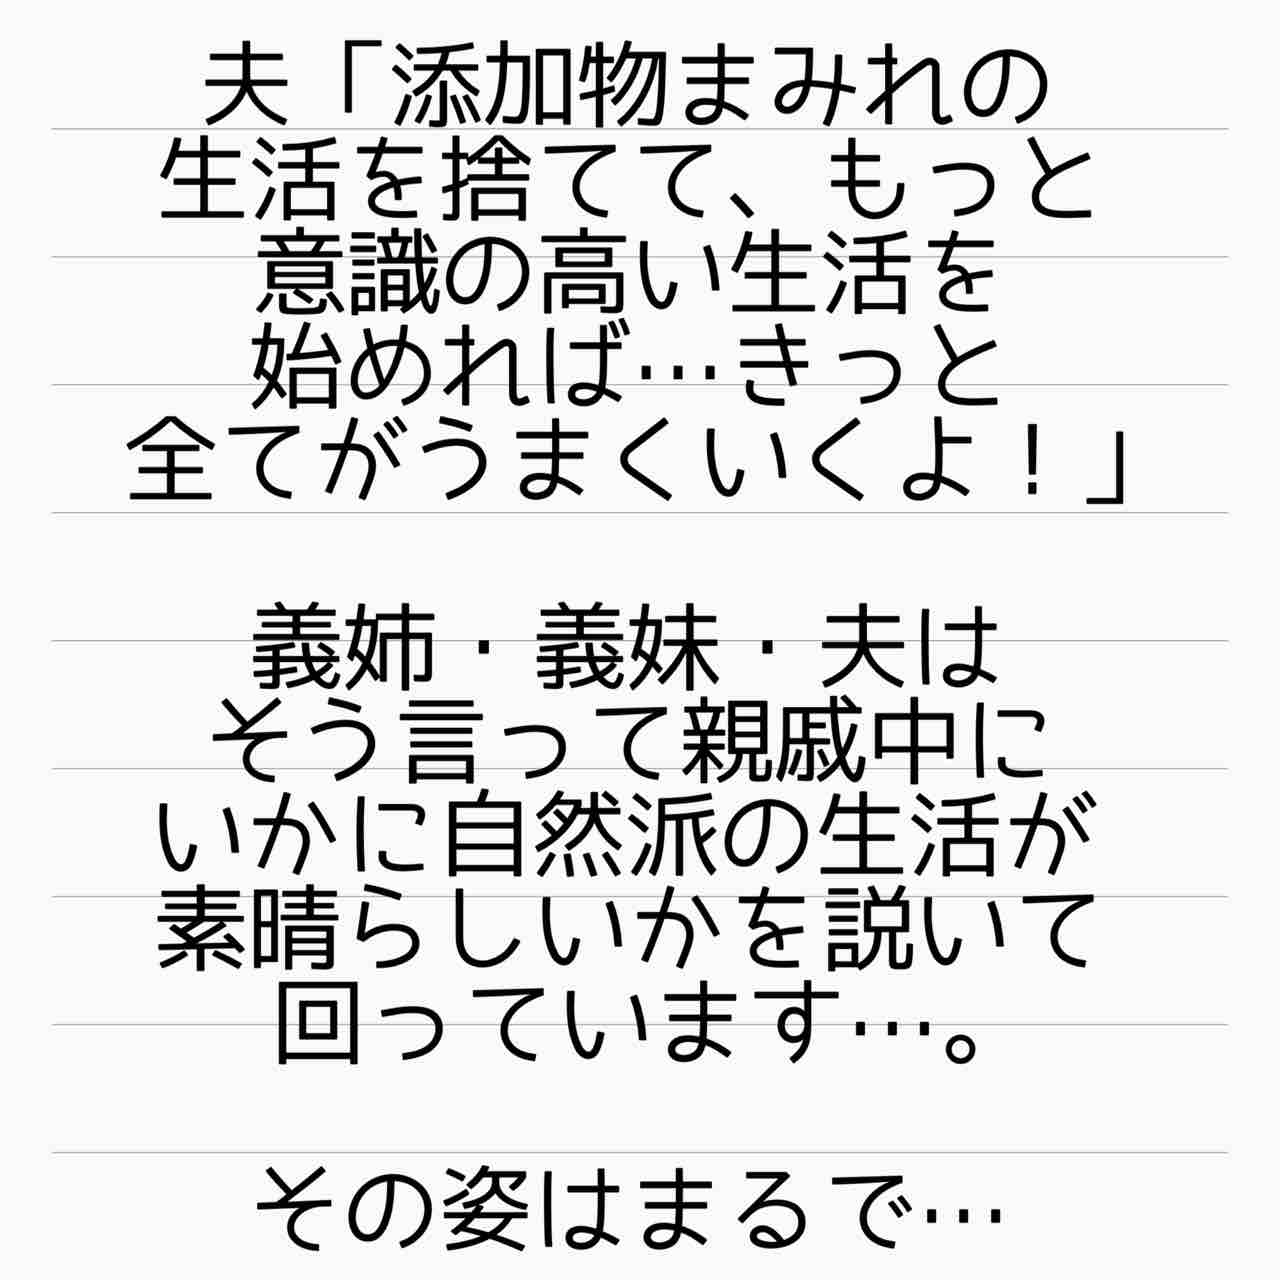 夫「添加物まみれの
生活を捨てて、もっと
意識の高い生活を
始めれば…きっと
全てがうまくいくよ！」
義姉・義妹・夫は
そう言って親戚中に
いかに自然派の生活が
素晴らしいかを説いて
回っています…。
その姿はまるで…